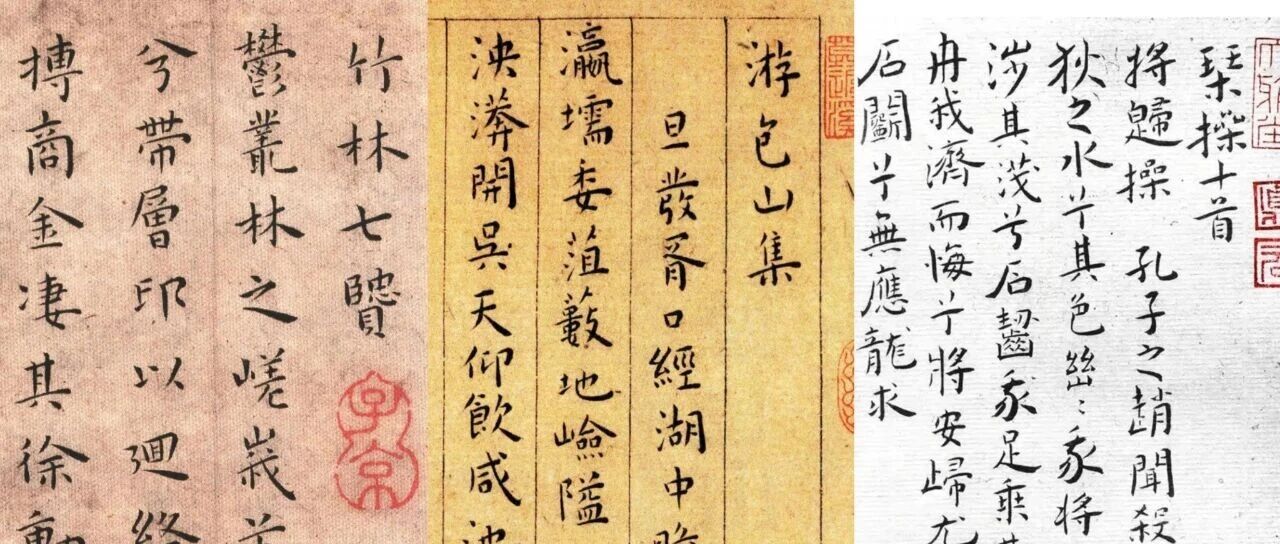 竹林七賢
鬱叢林之嵯峩兮
兮帶層邱以廻絡
摶商金凄其徐動
子京
游包山集
旦發胥口經湖中
瀛壖委菹藪地嶮隘
泱漭開吳天仰飲咸池
琹操十首
將歸操 孔子之趙聞殺
狄之水兮其色幽〻我將
涉其淺兮石齧我足乘其
冉我濟而悔兮將安歸尤
石鬭兮無應龍求